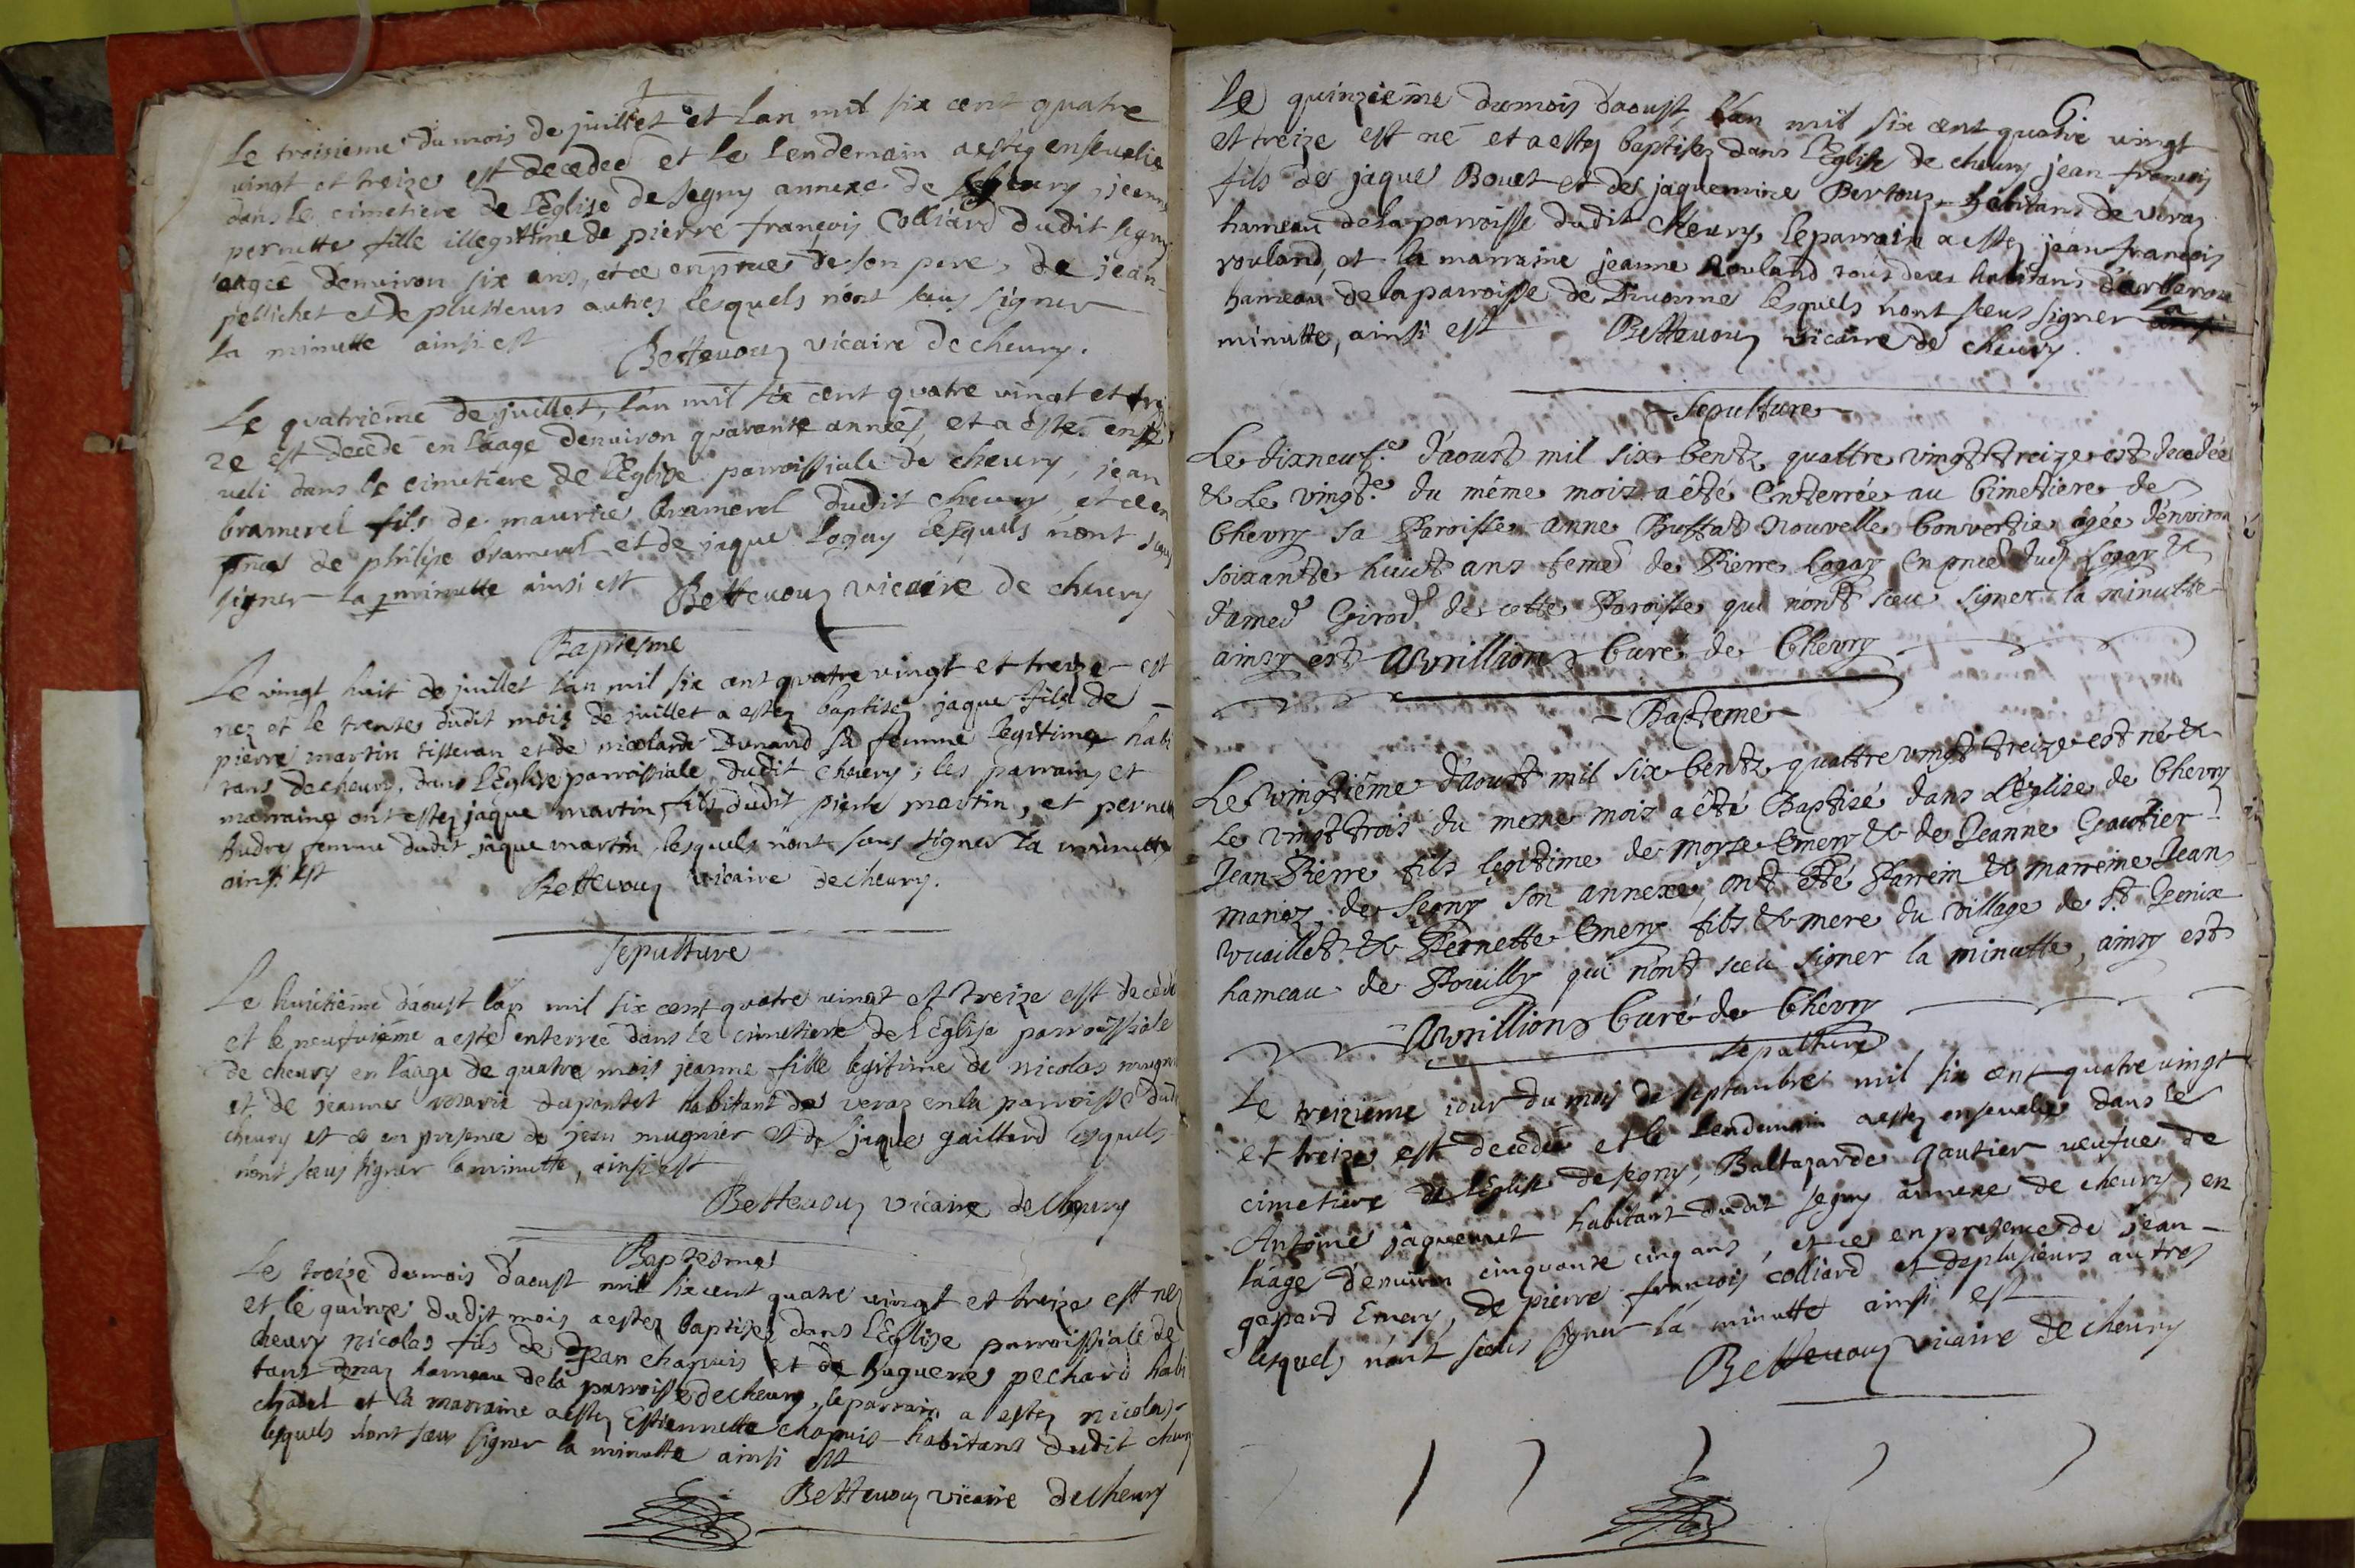 Le troisieme du mois de juillet et lan mil six cent quatre
vingt et treize est decedeé et le lendemain a estez enseuelie
dans le cimetiere de l'Eglise de segny annexe de cheury, jeanne
pernette fille illegitime de pierre françois Colliard dudit segny
aagée d'enuiron six ans, et ce en pñce de son pere, de jean
pellichet et de plusieurs autres lesquels n'ont sceus signer
la minutte ainsi est Betteuouz vicaire de cheury.
Le quatrieme de juillet, l'an mil six cent quatre vingt et trei
ze est decedé en l'aage denuiron quarante années, et a esté ense
ueli dans le cimetiere de l'Eglise parroissiale de cheury, jean
bramerel fils de maurice bramerel dudit cheury, et ce en
pñce de philipe bramerel et de jaque logay lesquels n'ont sceus
signer la minutte ainsi est Bettevouz vicaire de cheury
Baptesme
Le vingt huit de juillet l'an mil six cent quatre vingt et treize est
nez et le trente dudit mois de juillet a estez baptisez jaque fils de
pierre martin tisseran et de nicolarde Dunand sa femme legitime habi
tans de cheury, dans l'Eglise parroissiale dudit cheury; les parrain et
marraine ont estez jaque martin, fils dudit pierre martin, et pernette
Audry femme dudit jaque martin, lesquels n'ont sceus signer la minutte
ainsi est Bettevouz vicaire de cheury.
sepulture
Le huitieme d'aoust l'an mil six cent quatre vingt et treize est decedé
et le neufuieme a esté enterreé dans le cimetiere de l'Eglise parroissiale
de cheury en l'aage de quatre mois jeanne fille legitime de nicolas mugnier
et de jeanne marie dupontet habitant de veraz en la parroisse dudit
cheury et ce en presence de jean mugnier et de jaque gaillard lesquels
n'ont sceus signer la minutte, ainsi est
Bettevouz vicaire de cheury
Baptesme
Le treize du mois d'aoust mil six cent quatre vingt et treize est nez
et le quinze dudit mois a estez baptisez dans l'Eglise parroissiale de
cheury nicolas fils de Jean chapuis et de huguenne pechard habi
tant hameau de la parroisse de cheury, le parrain a estez nicolas
chatel et la marraine a estez Estiennette chapuis habitans dudit cheury
lesquels n'ont sceus signer la minutte ainsi est
Bettevouz vicaire de cheury
6
Le quinzieme du mois d'aoust l'an mil six cent quatre vingt
et treize est né et a estez baptisez dans l'Eglise de cheury jean françois
fils de jaque Bouet et de jaquemine Bertouz habitans de veraz
hameau de la parroisse dudit cheury, le parrain a estez jean françois
rouland, et la marraine jeanne Rouland tous deux habitans d'arberou
hameau de la parroisse de Diuonne lesquels n'ont sceus signer la
minutte, ainsi est Bettevouz vicaire de cheury.
Sepulture
Le dixneuf.e d'aoust mil six Centz quattre vingt treize est decedée
& Le vingt.e du même mois a êté Enterrée au Cimetiere de
Chevry sa Paroisse anne Buffat Nouvelle Convertie agée d'environ
soixante huict ans feme de Pierre Logay En pnce dud Logay &
d'amed Girod de cette Paroisse qui n'ont sceu signer la minutte
ainsy est Avrillion Curé de Chevry
Bapteme
Le vingtième d'aoust mil six Centz quattre vingt treize est né &
Le vingt trois du meme mois a êté Baptisé dans L'église de Chevry
Jean Pierre fils legitime de moyse Emery & de Jeanne Gautier
mariez de Segny son annexe, ont été Parrein & marreine Jean
vuaillet & Pernette Emery fils & mere du village de St Genix
hameau de Pouilly qui n'ont sceu signer la minutte, ainsy est
Avrillion Curé de Chevry
Sepulture
Le treizieme jour du mois de septembre mil six cent quatre vingt
et treize est decedeé et le lendemain a estez enseuelie dans le
cimetiere de l'Eglise de segny, Baltazarde Gautier veufue de
Antoine jaquemet habitant dudit segny annexe de cheury, en
l'aage d'enuiron cinquante cinq ans, et ce en presence de jean
gaspard Emery, de pierre françois colliard et de plusieurs autres
lesquels n'ont sceus signer la minutte ainsi est
Bettevouz vicaire de cheury